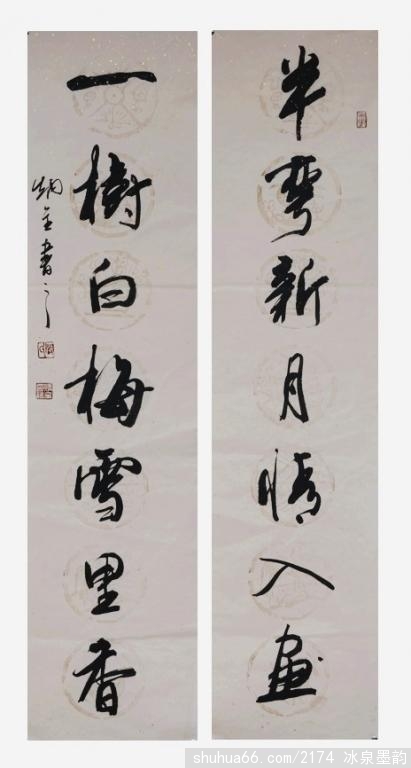 半彎新月情入画
一樹白梅雪里香
炳金書之
shuhua66.com/2174 冰泉墨韵